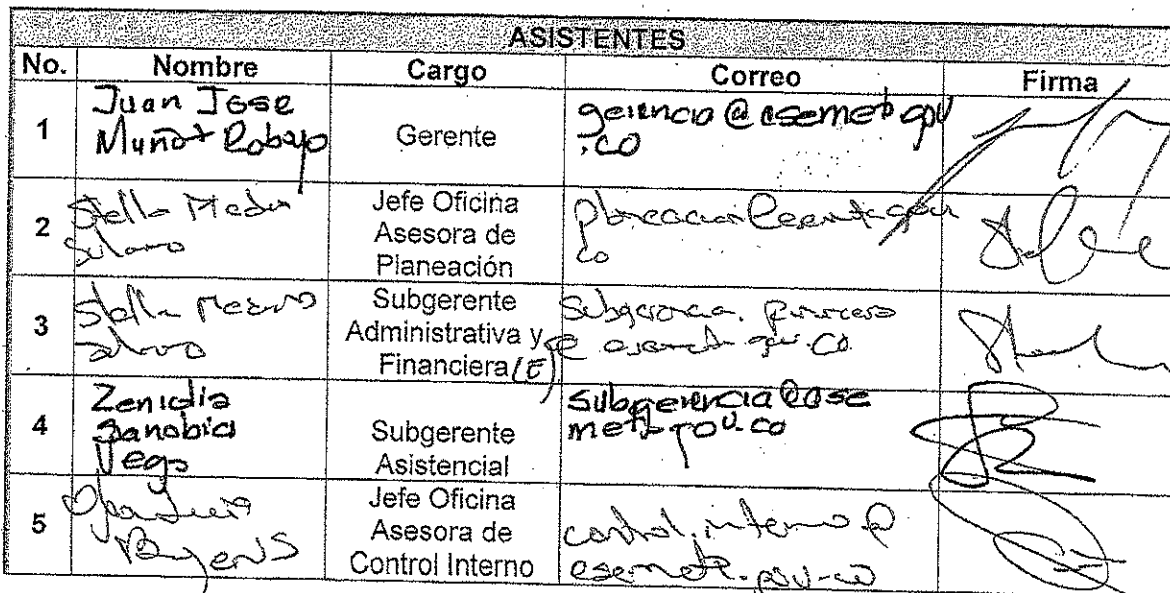 ASISTENTES
No. Nombre Cargo Correo Firma
1 Juan Jose Muñoz Robayo Gerente gerencia@esemeta.gov.co
2 Stella Medina Solano Jefe Oficina Asesora de Planeación planeacion@esemeta.gov.co
3 Stella Medina Solano Subgerente Administrativa y Financiera (E) Subgerencia.financiera@esemeta.gov.co
4 Zenidia Sanabria Vega Subgerente Asistencial subgerencia@esemeta.gov.co
5 Jefe Oficina Asesora de Control Interno control.interno@esemeta.gov.co